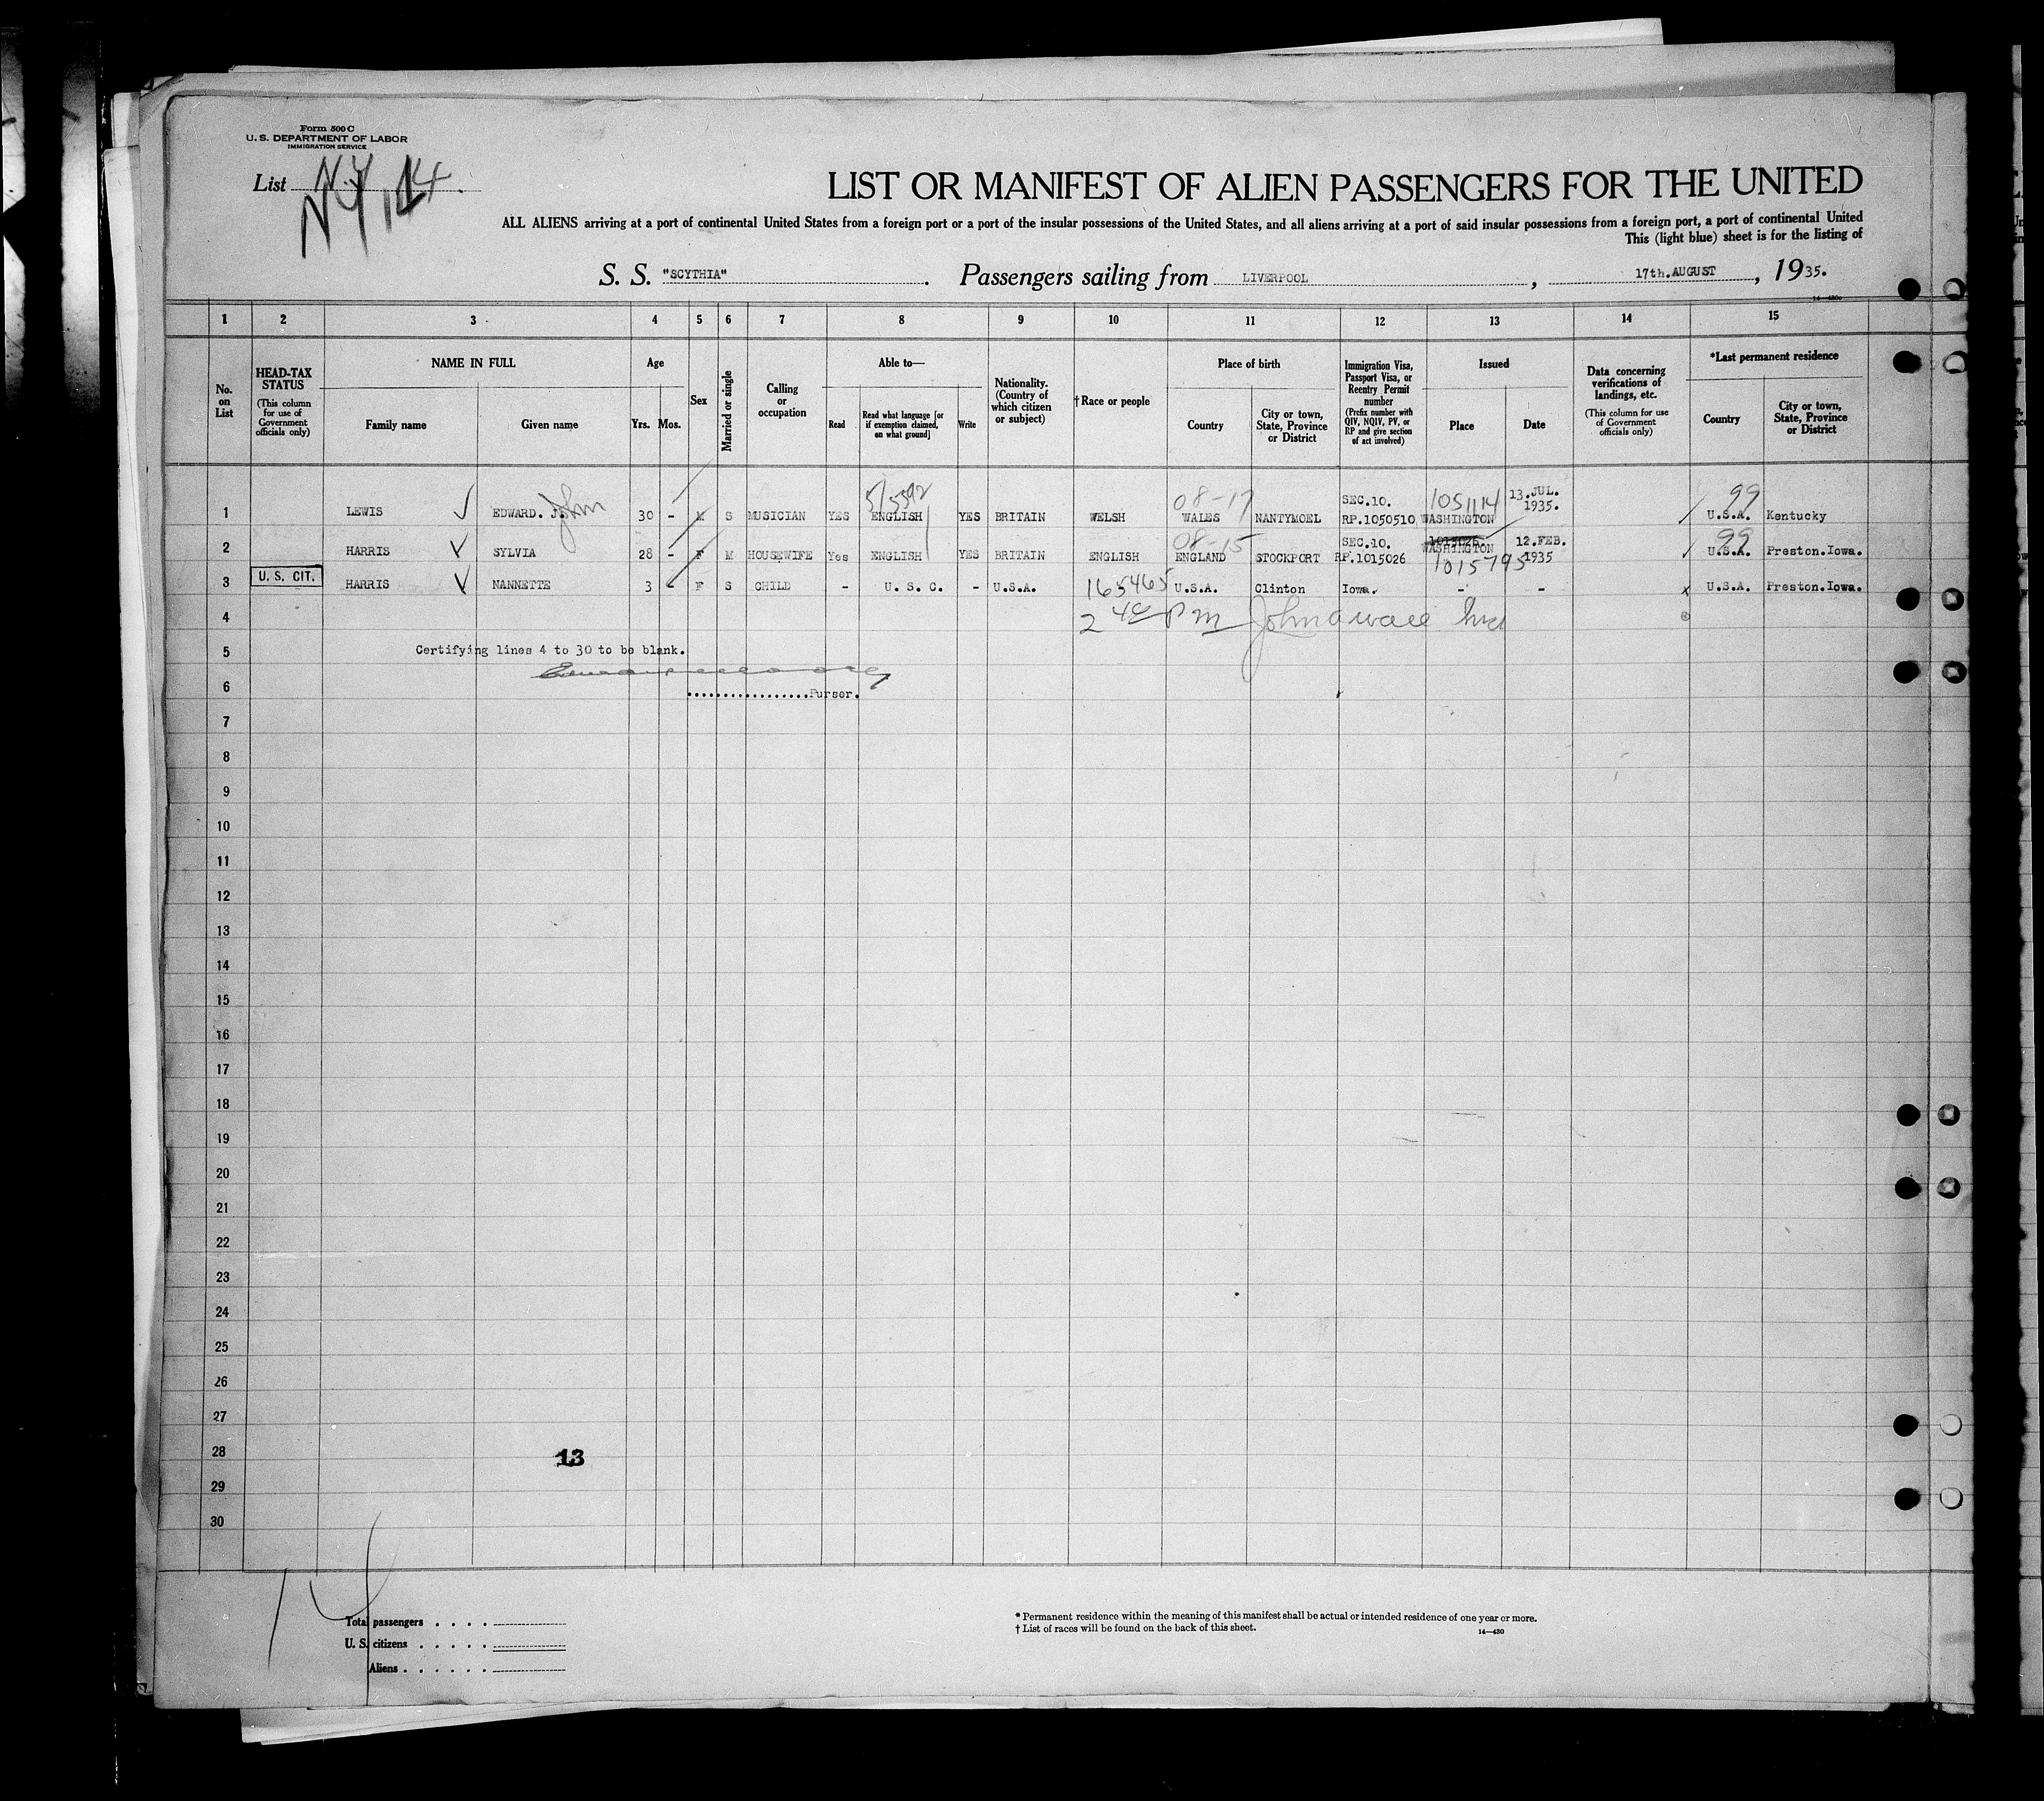 Form 500 C
U. S. DEPARTMENT OF LABOR
IMMIGRATION SERVICE
List N.Y. 14
NY, 14
LIST OR MANIFEST OF ALIEN PASSENGERS FOR THE UNITED
ALL ALIENS arriving at a port of continental United States from a foreign port or a port of the insular possessions of the United States, and all aliens arriving at a port of said insular possessions from a foreign port, a port of continental United
This (light blue) sheet is for the listing of
S. S. "SCYTHIA". Passengers sailing from LIVERPOOL, 17th.AUGUST, 1935.
14—430c
1 2 3 4 5 6 7 8 9 10 11 12 13 14 15
No. on List
HEAD-TAX STATUS (This column for use of Government officials only)
NAME IN FULL
Family name
Given name
Age
Yrs. Mos.
Sex
Married or single
Calling or occupation
Able to—
Read
Read what language [or if exemption claimed, on what ground]
Write
Nationality. (Country of which citizen or subject)
†Race or people
Place of birth
Country
City or town, State, Province or District
Immigration Visa, Passport Visa, or Reentry Permit number (Prefix number with QIV, NQIV, PV, or RP and give section of act involved)
Issued
Place
Date
Data concerning verifications of landings, etc. (This column for use of Government officials only)
*Last permanent residence
Country
City or town, State, Province or District
5/5592 08-17 SEC.10. 1051114 13.JUL. 99
1 LEWIS ✓ EDWARD. J. John 30 - M S MUSICIAN YES ENGLISH YES BRITAIN WELSH WALES NANTYMOEL RP.1050510 WASHINGTON 1935. U.S.A. Kentucky
08-15 SEC.10. 1015026 12.FEB. 99
2 HARRIS ✓ SYLVIA 28 - F M HOUSEWIFE Yes ENGLISH YES BRITAIN ENGLISH ENGLAND STOCKPORT RP.1015026 WASHINGTON 1935 U.S.A. Preston.Iowa.
1015795
3 U. S. CIT. HARRIS ✓ NANNETTE 3 - F S CHILD - U. S. C. - U.S.A. 165465 U.S.A. Clinton Iowa. - - x U.S.A. Preston.Iowa.
4 2 40 PM
5 Certifying lines 4 to 30 to be blank.
6 ................Purser.
7
8
9
10
11
12
13
14
15
16
17
18
19
20
21
22
23
24
25
26
27
28 13
29
30
Total passengers . . . .
U. S. citizens . . . . .
Aliens . . . . . .
* Permanent residence within the meaning of this manifest shall be actual or intended residence of one year or more.
† List of races will be found on the back of this sheet.
14—430